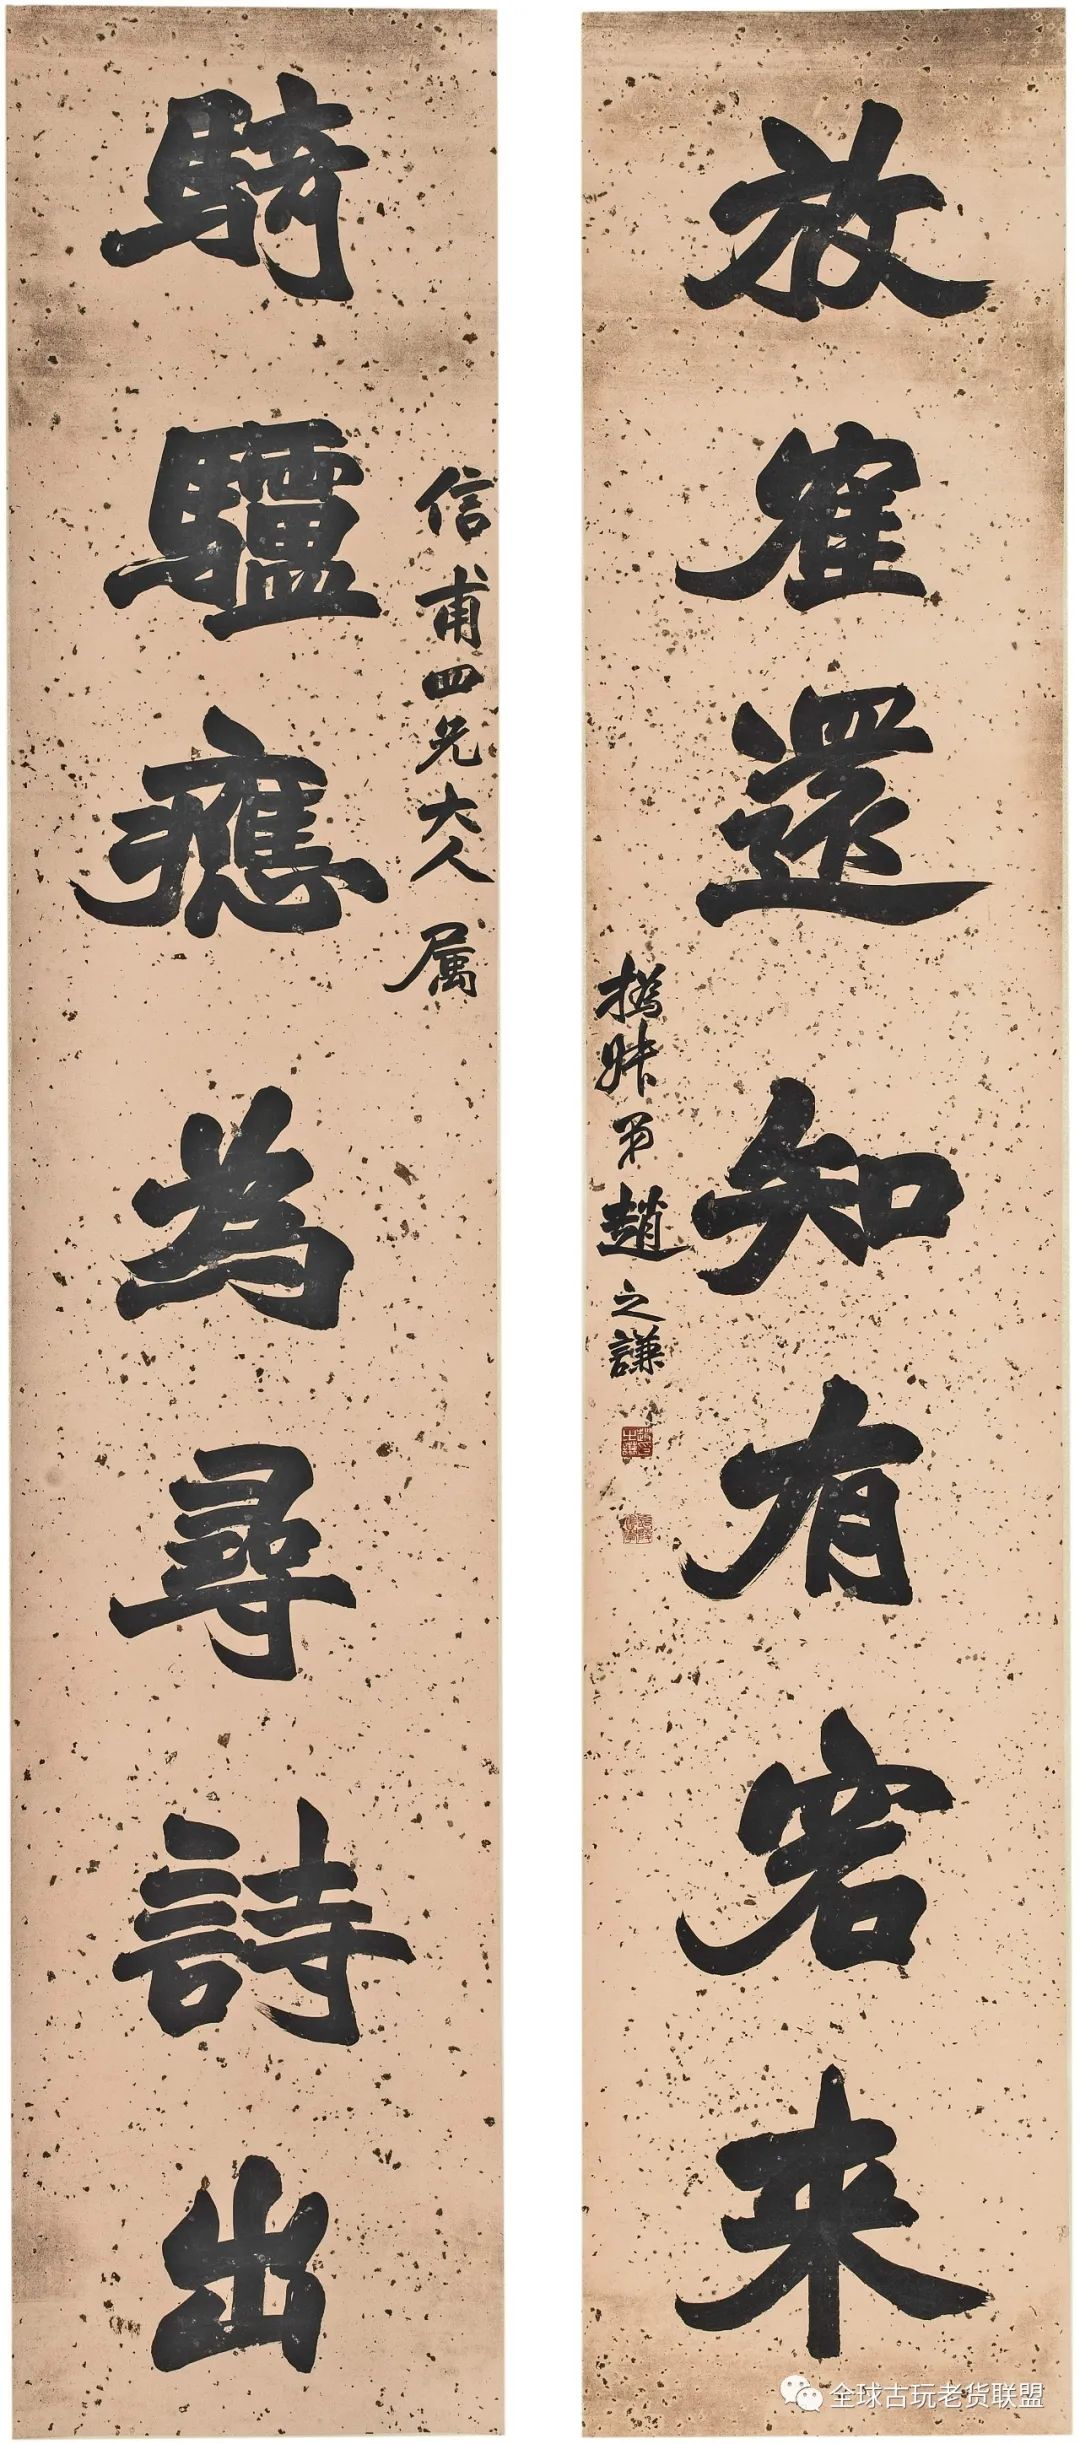 信甫四兄大人属
騎驢應為尋詩出
放寉還知有客来
撝叔弟趙之謙
全球古玩老货联盟